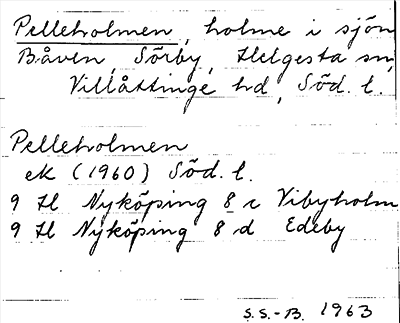 Pelleholmen, holme i sjön
Båven, Sörby, Helgesta sn,
Villåttinge hd, Söd. l.
Pelleholmen
ek (1960) Söd. l.
9 H Nyköping 8 c Vibyholm
9 H Nyköping 8 d Edeby
S.S.-B. 1963